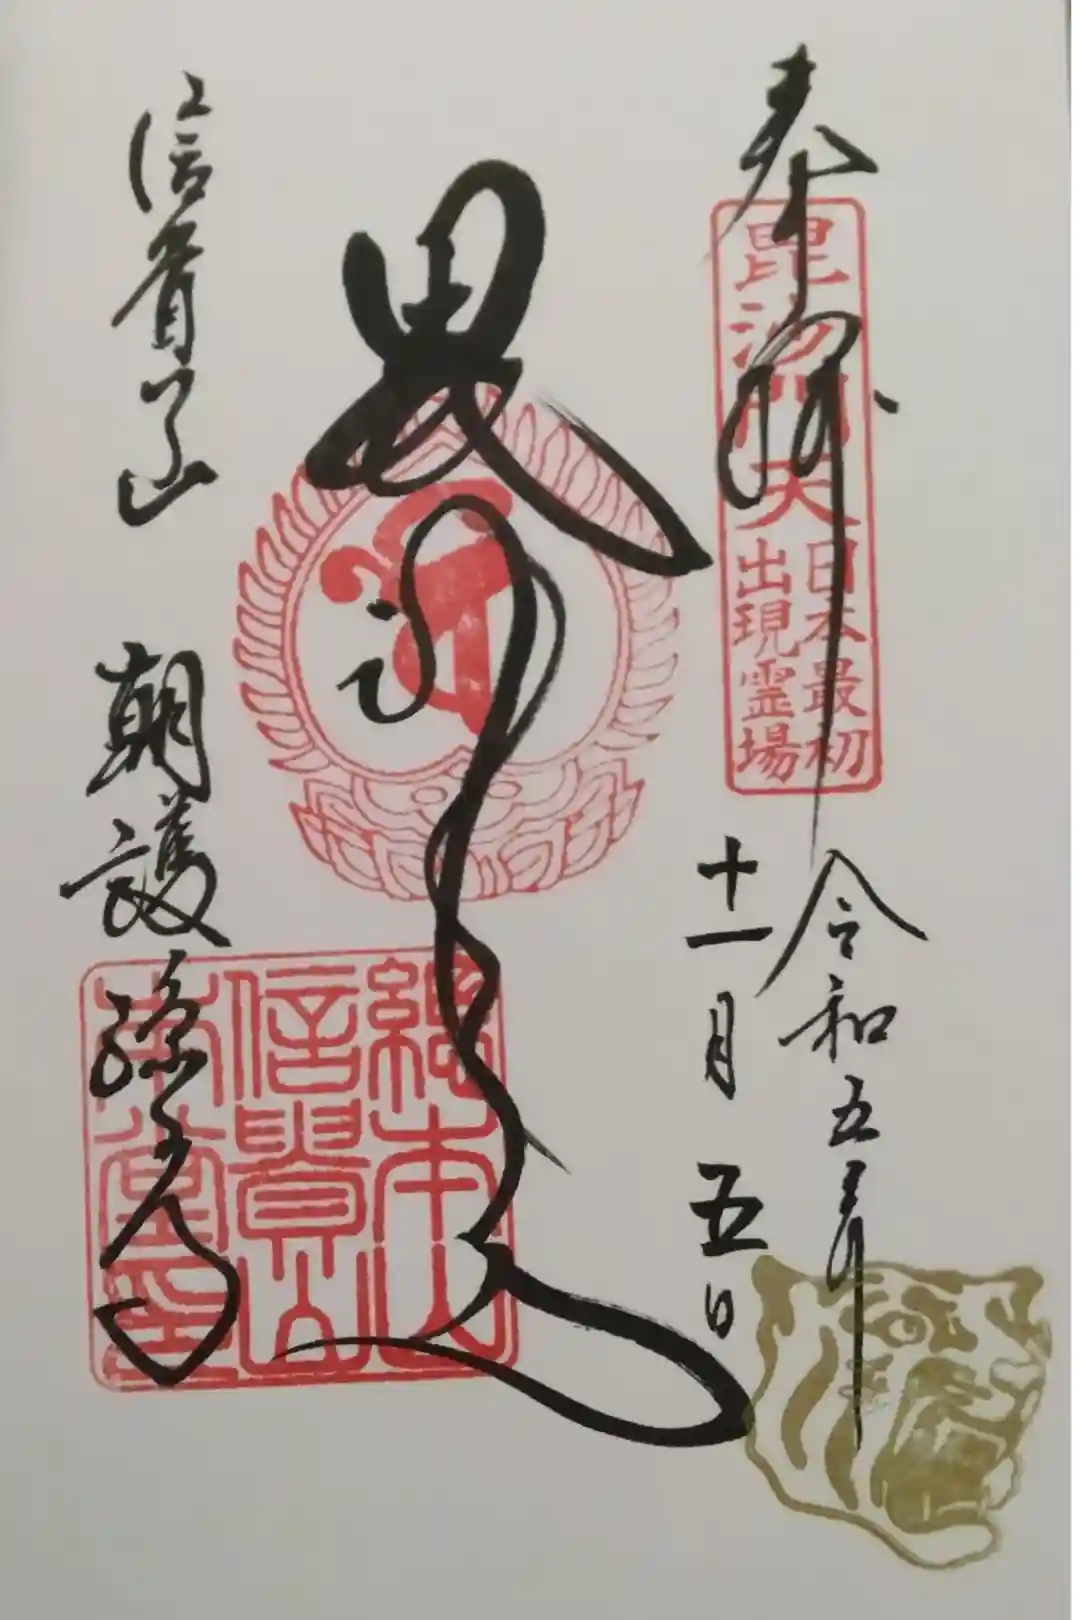 奉拝
毘沙門天
日本最初
出現霊場
令和五年
十一月五日
総本山
信貴山
本堂印
信貴山
朝護孫子寺